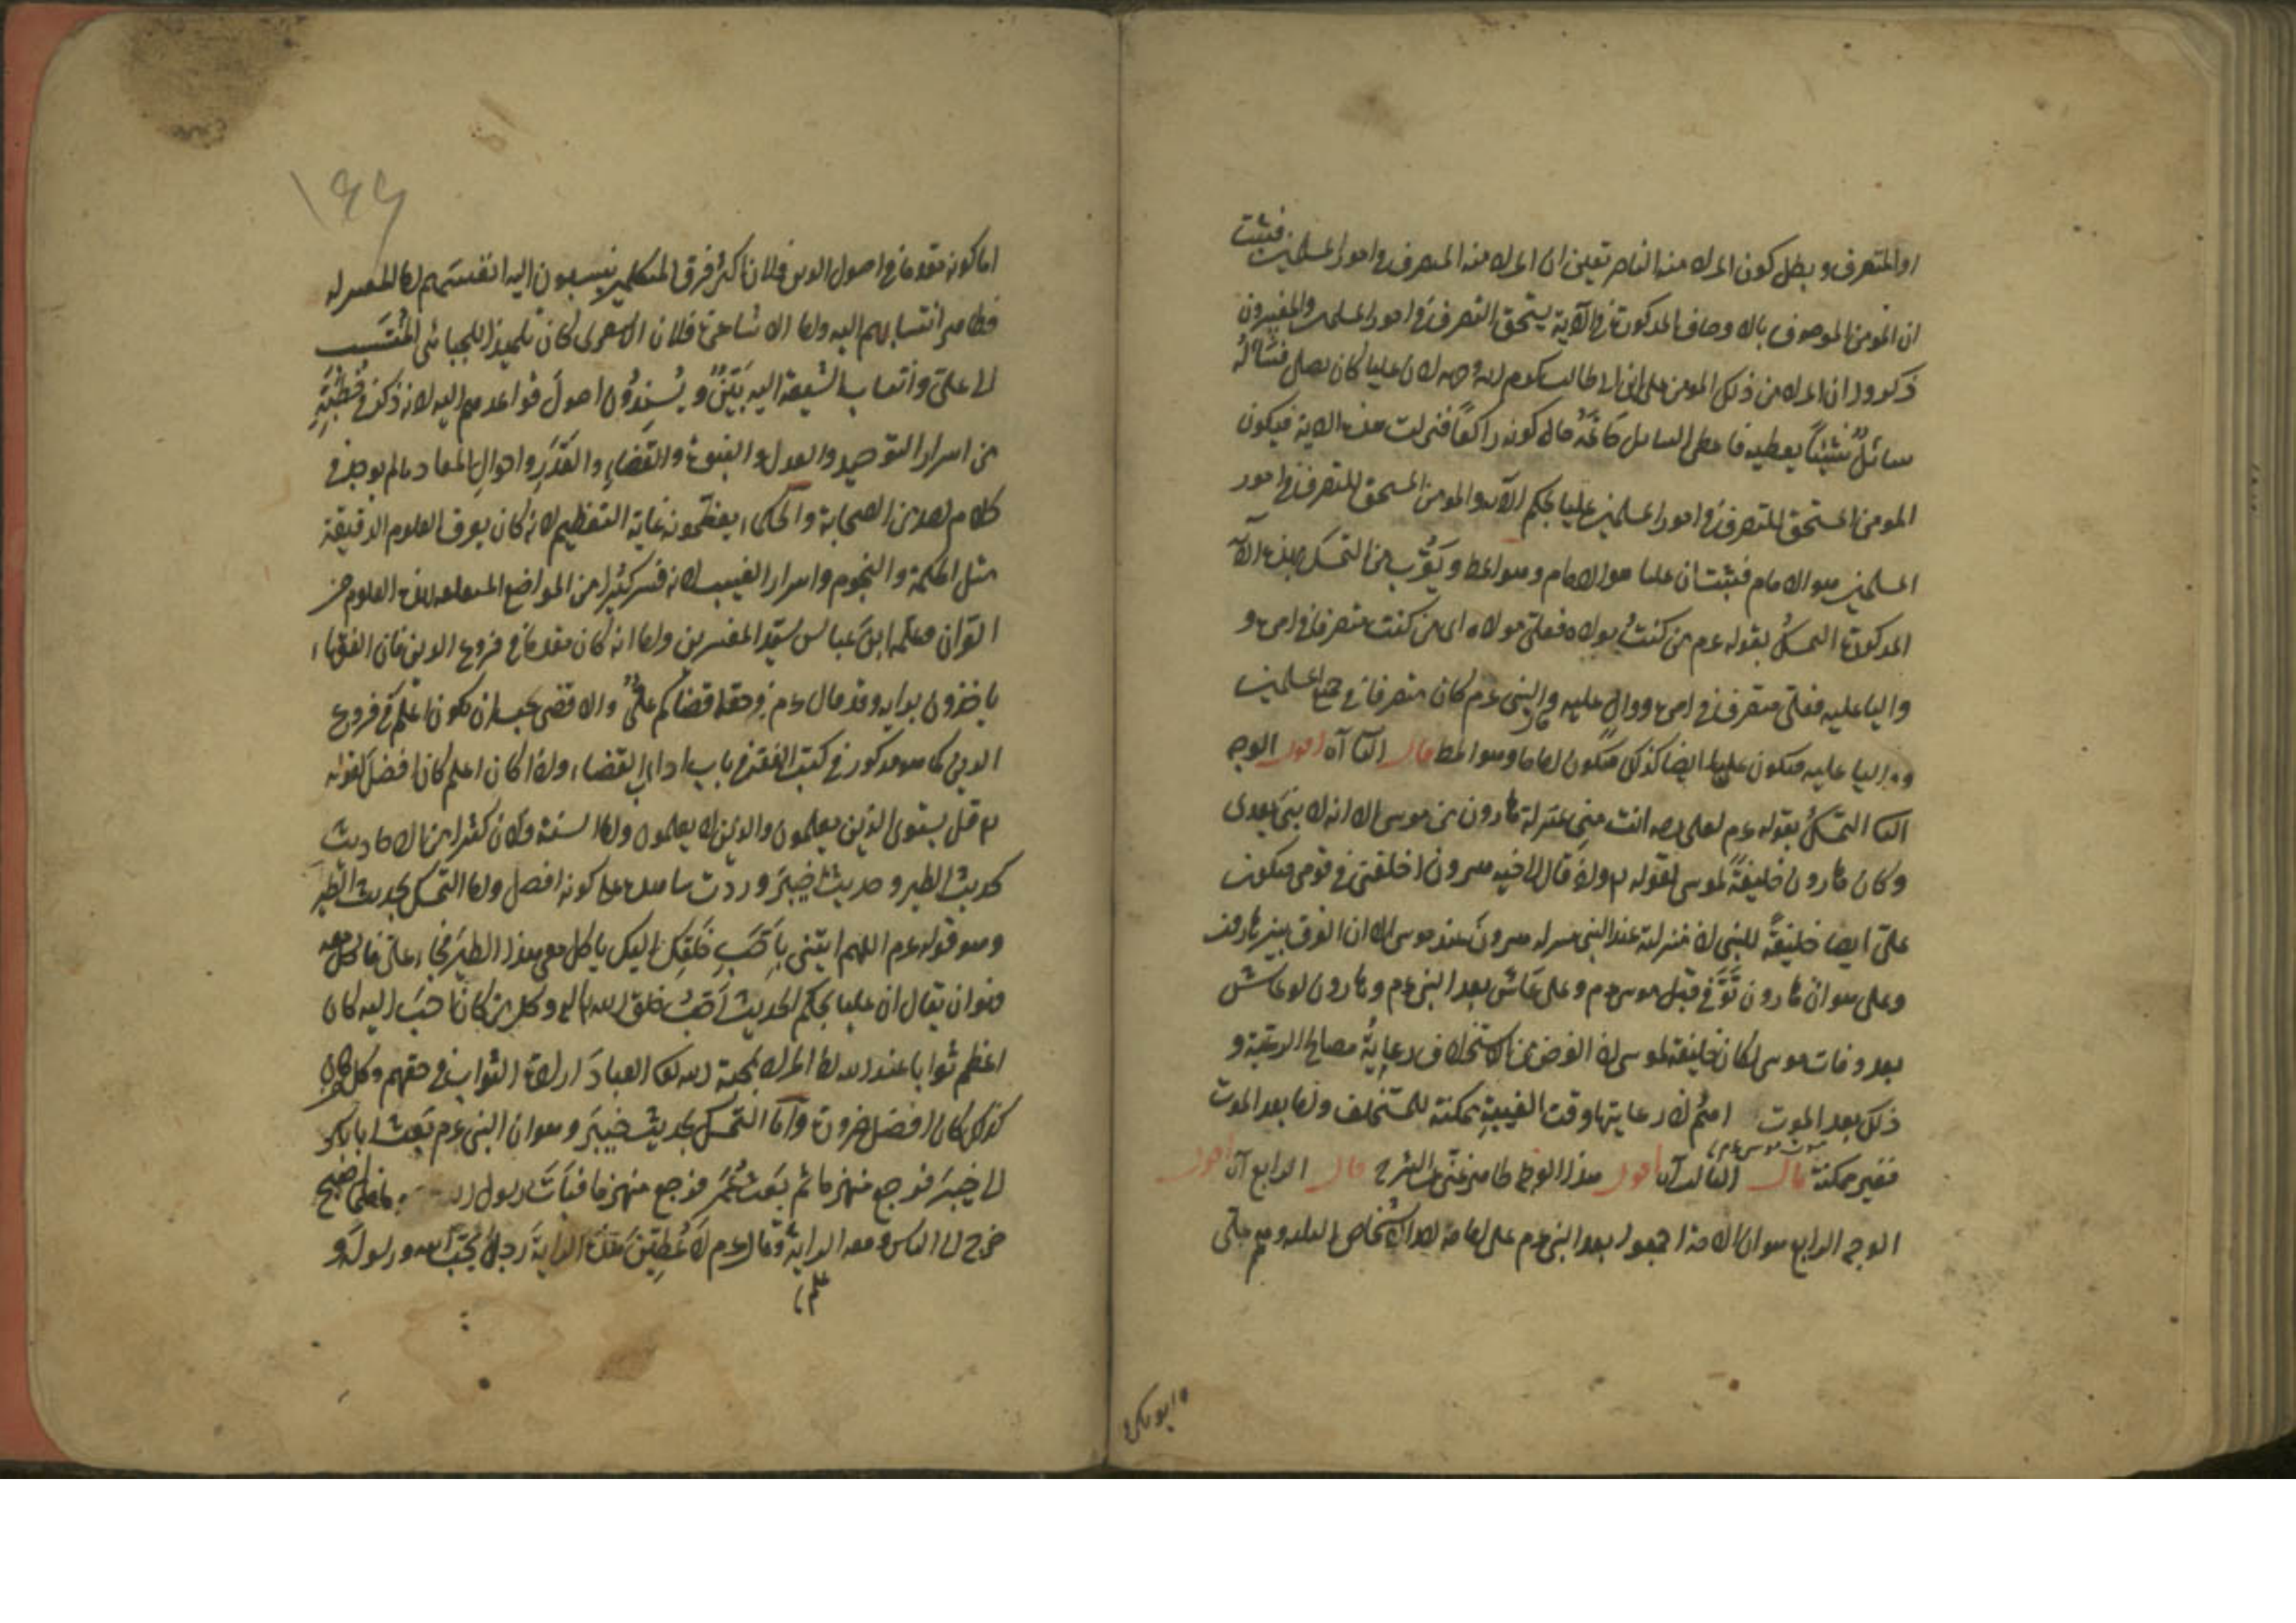 او المتصرف وبطل كون المراد منه الناصر تعين ان المراد منه المتصرف في امور المسلمين فثبت
ان المؤمن الموصوف بالاوصاف المذكورة في الآية يستحق التصرف في امور المسلمين والمفسرون
ذكروا ان المراد من ذلك المؤمن علي ابن ابي طالب كرم الله وجهه لان عليا كان يصلي فسأله
سائل شيئاً يعطيه فاعطى السائل خاتمه حال كونه راكعاً فنزلت هذه الاية فيكون
المؤمن المستحق للتصرف في امور المسلمين عليا بحكم الآية والمؤمن المستحق للتصرف في امور
المسلمين هو الامام فثبت ان عليا هو الامام وهو المط ويقرب من التمسك بهذه الآ
المذكورة التمسك بقوله عم من كنت مولاه فعلي مولاه اي من كنت متصرفا في امره و
واليا عليه فعلي متصرف في امره ووال عليه والنبي عم كان متصرفا في جميع المسلمين
و واليا عليه فيكون عليا ايضا كذلك فيكون اماما وهو المط قال الثا آه اقول الوجه
الثا التمسك بقوله عم لعلي رصه انت مني بمنزلة هارون من موسى الا انه لا نبي بعدي
وكان هارون خليفةً لموسى لقوله تع واذ قال لاخيه هرون اخلفني في قومي فيكون
علي ايضا خليفةً للنبي اذ منزلته عند النبي منزلة هرون عند موسى الا ان الفرق بين هارون
وعلي هو ان هارون توفي قبل موسى عم وعلي عاش بعد النبي عم وهارون لو عاش
بعد وفات موسى لكان خليفة لموسى اذ الغرض من الاستخلاف رعاية مصالح الرعية و
ذلك بعد الموت اهم اذ رعايتها وقت الغيبة ممكنة للمستخلف واما بعد الموت
موت موسى عم
فغير ممكنة قال الثالث آه اقول هذا الوجه ظاهر غني عن الشرح قال الرابع آه اقول
الوجه الرابع هو ان الامة اجمعوا بعد النبي عم على امامة احد الاشخاص الثلثة وهم علي
و ابو بكر و
١٤٤
اما كونه مقدما في اصول الدين فلان اكثر فرق المتكلمين ينسبون اليه انفسهم اما المعتزلة
فظاهر انتسابهم اليه واما الاشاعرة فلان الاشعري كان تلميذا للجبائي المنتسب
الى علي وانتساب الشيعة اليه بيّن ويسندون اصول قواعدهم اليه لانه ذكر في خطبته
من اسرار التوحيد والعدل والنبوة والقضاء والقدر واحوال المعاد ما لم يوجد في
كلام احد من الصحابة والحكماء يعظمونه غاية التعظيم لانه كان يعرف العلوم الدقيقة
مثل الحكمة والنجوم واسرار الغيب لانه فسر كثيرا من المواضع المتعلقة بهذه العلوم من
القران وعلّمه ابن عباس سيد المفسرين واما انه كان مقدما في فروع الدين فان الفقهاء
ياخذون برايه وقد قال عم في حقه اقضاكم علي والاقضى يجب ان يكون اعلم في فروع
الدين كما هو مذكور في كتب الفقه في باب اداب القضاء واذا كان اعلم كان افضل لقوله
تع قل هل يستوي الذين يعلمون والذين لا يعلمون واما السنة فلان كثيرا من الاحاديث
كحديث الطير وحديث خيبر وردت شاهدة على كونه افضل واما التمسك بحديث الطير
وهو قوله عم اللهم ايتني باحب خلقك اليك ياكل معي هذا الطير فجاء علي فاكل معه
فهو ان يقال ان عليا بحكم الحديث احب خلق الله تع اليه وكل من كان احب اليه كان
اعظم ثوابا عند الله اذ المراد بمحبة الله تع العباد ارادة الثواب في حقهم وكل من كان
كذلك كان افضل ضرورة واما التمسك بحديث خيبر وهو ان النبي عم بعث ابا بكر
الى خيبر فرجع منهزما ثم بعث عمر فرجع منهزما فبات رسول الله فلما اصبح
خرج الى الناس ومعه الراية وقال عم لاعطين هذه الراية رجلا يحب الله ورسوله و